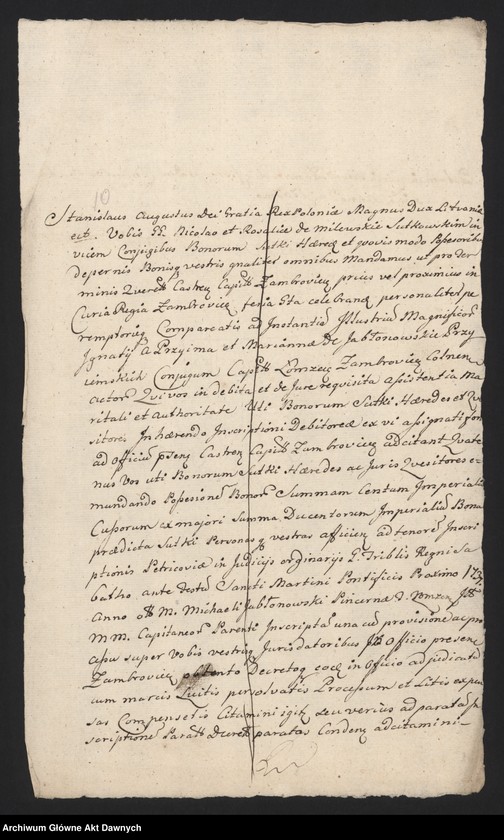 10
Stanislaus Augustus Dei Gratia Rex Poloniæ Magnus Dux Litvaniæ
ect. Vobis GG. Nicolao et Rosaliæ de Milewskie Sutkowskim in
vicem Conjugibus Bonorum Sutki Hæred et quovis modo Possessoribq
de pernis Bonisq vestris qualiter omnibus Mandamus ut pro Ter
minis Castren Capitt Zambrovien prius vel proximius in
Curia Regia Zambrovien feria celebrand personaliter pe
remptorieq Compareatis ad Instantia Illustrium Magnificor
Ignatij a Przyima et Mariannæ de Jabłonowskie Przy
iemskich Conjugum Capitt Łomzen Zambrovien
actor Qui vos in debita et de Jure requisita assistentia Ma
ritali et authoritate Uti Bonorum Sutki Hæredes et
sitores Inhærendo Inscriptioni Debitores ex vi
ad officium Castren Capitt Zambrovien adcitant Quate
nus Vos uti Bonorum Sutki Hæredes ac Juris Qvesitores e
mundando Possessione Bonor Summam Centum Imperialiu
Cuporum ex majori summa Ducentorum Imperialium Bona
prædicta Sutki Personasq vestras afficien ad tenore Inscri
ptionis Petricoviæ in Judicijs ordinarijs G. Triblis Regni Sa
batho ante Sancti Martini Pontificis Proximo
Anno M. Michaeli Jabłonowski Pincernæ
M. M. Capitaneor Parenti Inscripta una cu provisione
super Vobis vestrisq Officio
Zambrovien Decretoq in Officio adjudicata
cum marcis Luitis persolvatis Processum et Litis expen
sas Compensetis Citamini igit seu verius ad paratam
scriptione Parati Decret paratas Conden adcitamini
Archiwum Główne Akt Dawnych